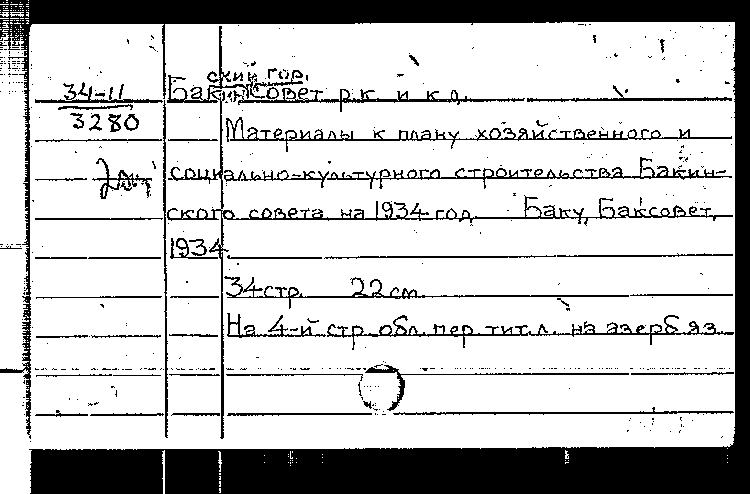 ский гор.
34-11 Бакинсовет р.к. и к.д.
3280
Материалы к плану хозяйственного и
социально-культурного строительства Бакин-
ского совета на 1934 год. Баку, Баксовет,
1934.
34 стр. 22 см.
На 4-й стр. обл. пер. тит. л. на азерб. яз.